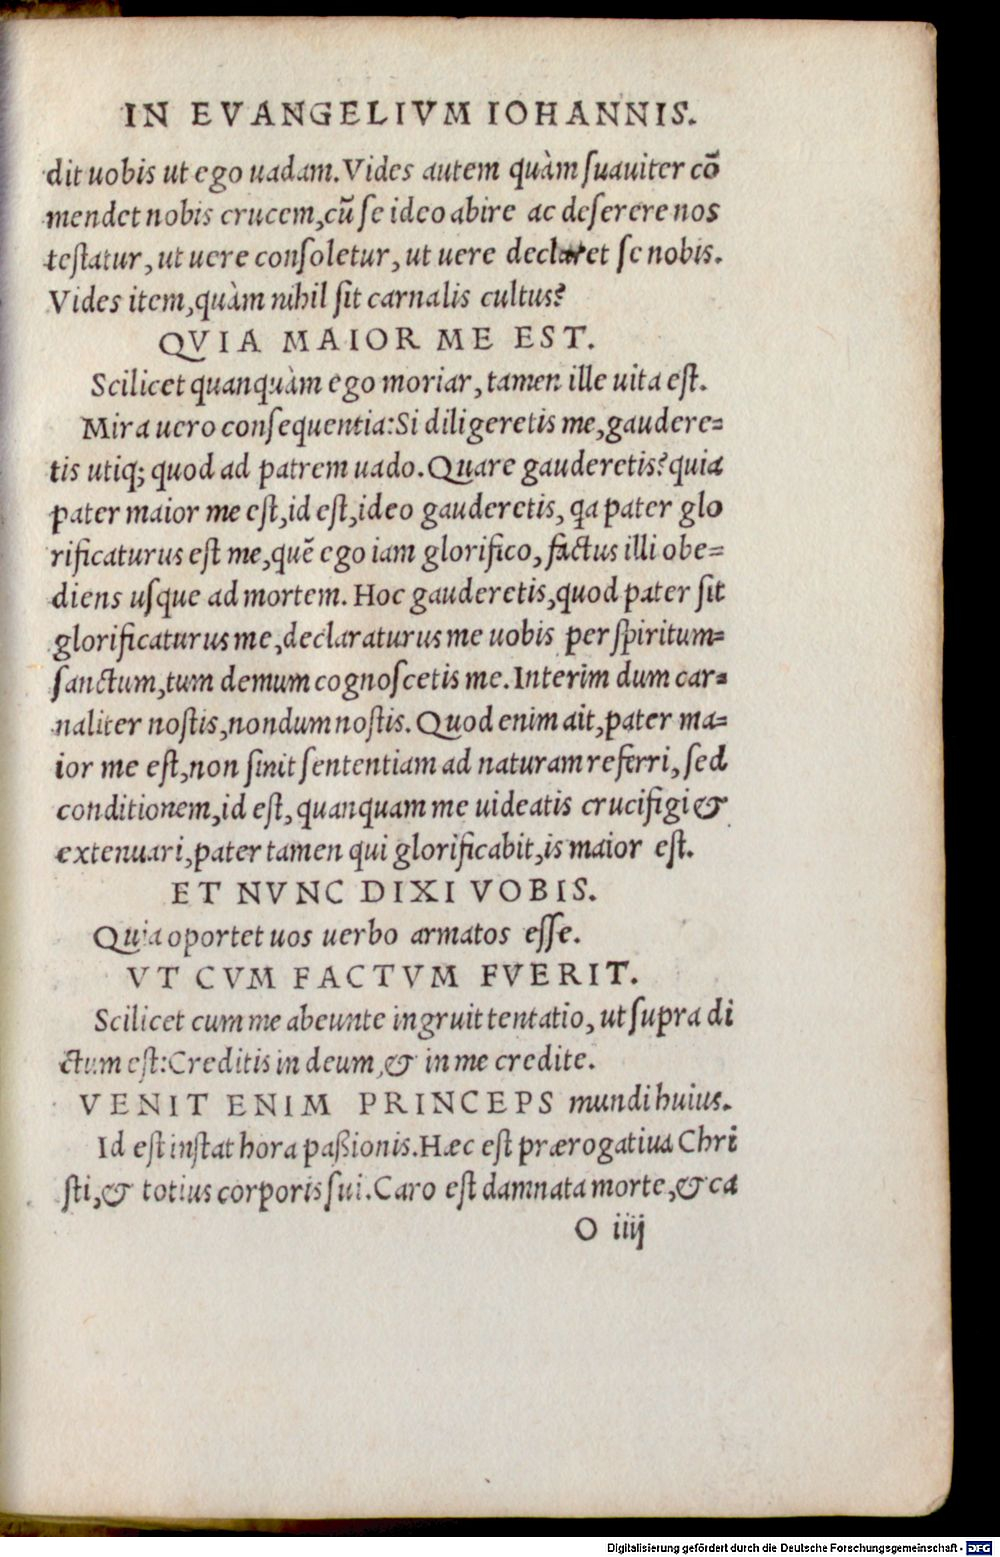 IN EVANGELIVM IOHANNIS.
dit uobis ut ego uadam. Vides autem quàm ſuauiter cō
mendet nobis crucem, cū ſe ideo abire ac deſerere nos
teſtatur, ut uere conſoletur, ut uere declaret ſe nobis.
Vides item, quàm nihil ſit carnalis cultus?
QVIA MAIOR ME EST.
Scilicet quanquàm ego moriar, tamen ille uita eſt.
Mira uero conſequentia: Si diligeretis me, gaudere=
tis utiq; quod ad patrem uado. Quare gauderetis? quia
pater maior me eſt, id eſt, ideo gauderetis, qa pater glo
rificaturus eſt me, quē ego iam glorifico, factus illi obe=
diens uſque ad mortem. Hoc gauderetis, quod pater ſit
glorificaturus me, declaraturus me uobis per ſpiritum=
ſanctum, tum demum cognoſcetis me. Interim dum car=
naliter noſtis, nondum noſtis. Quod enim ait, pater ma=
ior me eſt, non ſinit ſententiam ad naturam referri, ſed
conditionem, id eſt, quanquam me uideatis crucifigi &
extenuari, pater tamen qui glorificabit, is maior eſt.
ET NVNC DIXI VOBIS.
Quia oportet uos uerbo armatos eſſe.
VT CVM FACTVM FVERIT.
Scilicet cum me abeunte ingruit tentatio, ut ſupra di
ctum eſt: Creditis in deum, & in me credite.
VENIT ENIM PRINCEPS mundi huius.
Id eſt inſtat hora paßionis. Hæc eſt prærogatiua Chri
ſti, & totius corporis ſui. Caro eſt damnata morte, & ca
O iiij
Digitalisierung gefördert durch die Deutsche Forschungsgemeinschaft - DFG